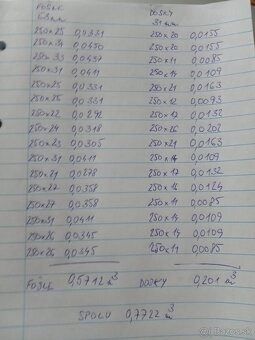 FOŠNE DOSKY
53mm 31mm
250 x 25 0,0331 250 x 20 0,0155
250 x 34 0,0450 250 x 20 0,0155
250 x 33 0,0437 250 x 11 0,0085
250 x 31 0,0411 250 x 14 0,0109
250 x 25 0,0331 250 x 21 0,0163
250 x 25 0,0331 250 x 12 0,0093
250 x 22 0,0292 250 x 17 0,0132
250 x 24 0,0318 250 x 26 0,0202
250 x 23 0,0305 250 x 21 0,0163
250 x 31 0,0411 250 x 14 0,0109
250 x 21 0,0278 250 x 17 0,0132
250 x 27 0,0358 250 x 16 0,0124
250 x 27 0,0358 250 x 11 0,0085
250 x 31 0,0411 250 x 14 0,0109
250 x 26 0,0345 250 x 14 0,0109
250 x 26 0,0345 250 x 11 0,0085
FOŠNE 0,5712 m³ DOSKY 0,201 m³
SPOLU 0,7722 m³
bazos.sk